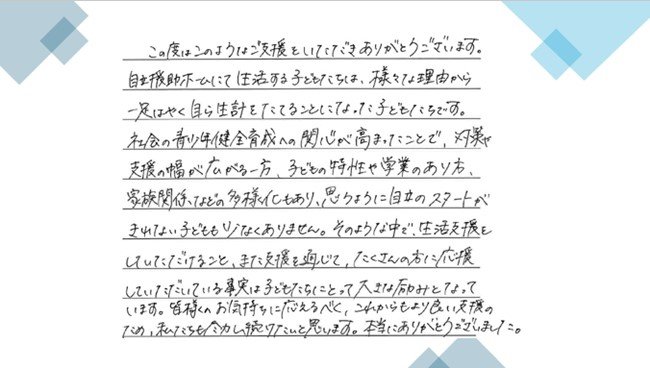 この度はこのようなご支援をいただきありがとうございます。
自立援助ホームにて生活する子どもたちは、様々な理由から
一足はやく自ら生計をたてることになった子どもたちです。
社会の青少年健全育成への関心が高まったことで、対策や
支援の幅が広がる一方、子どもの特性や学業のあり方、
家族関係などの多様化もあり、思うように自立のスタートが
きれない子どもも少なくありません。そのような中で、生活支援を
していただけること、また支援を通じて、たくさんの方に応援
していただいている事実は子どもたちにとって大きな励みとなって
います。皆様のお気持ちに応えるべく、これからもより良い支援の
ため、私たちも尽力し続けたいと思います。本当にありがとうございました。